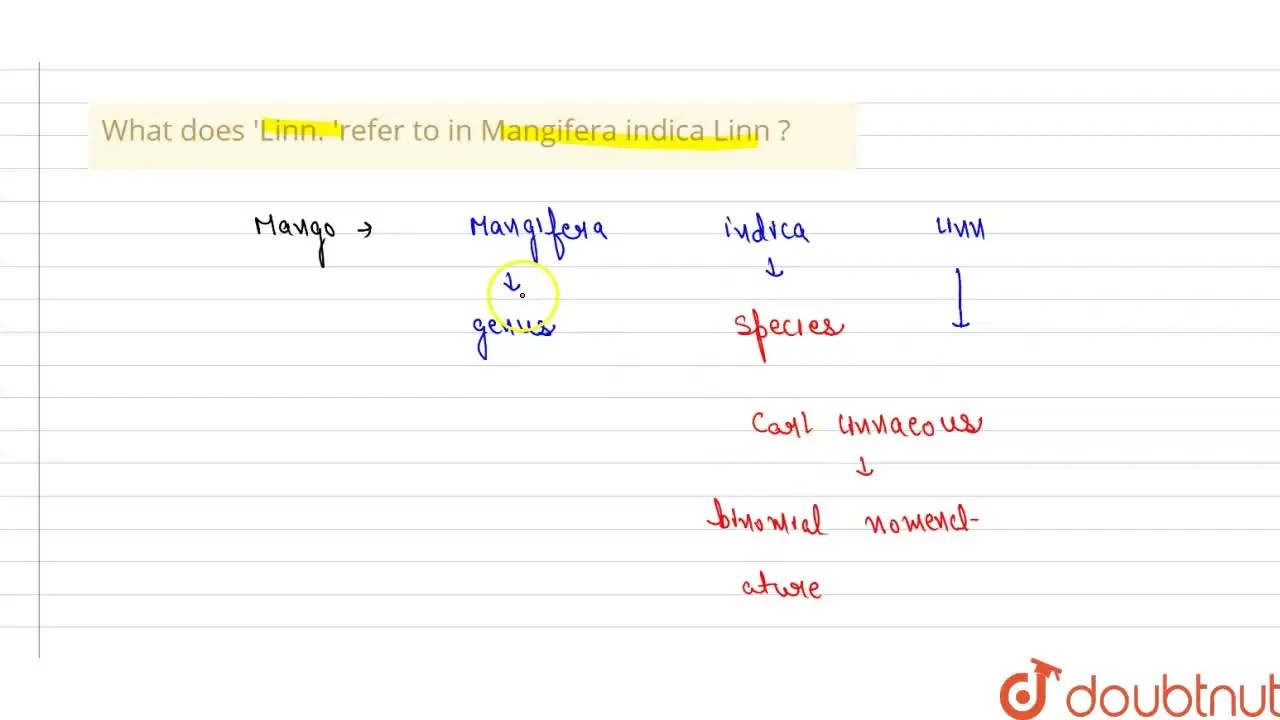 What does 'Linn. 'refer to in Mangifera indica Linn ?
Mango → Mangifera indica Linn
↓ ↓ ↓
genus species
Carl Linnaeous
↓
binomial nomencl-
ature
doubtnut